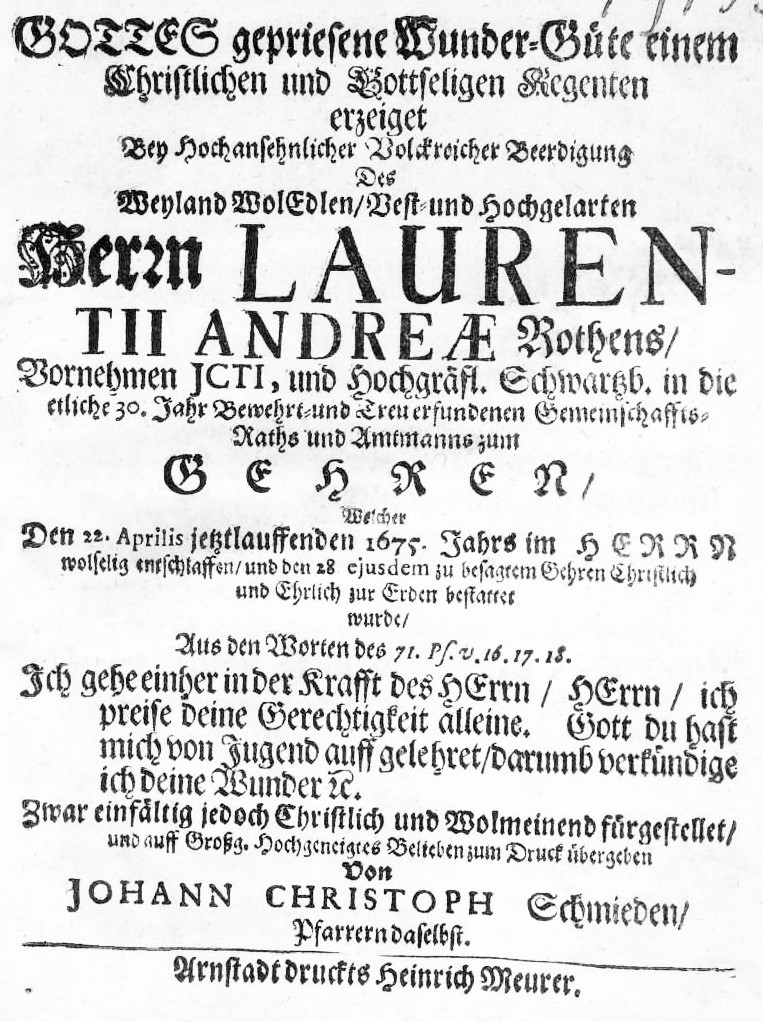 GOTTES gepriesene Wunder-Güte einem
Christlichen und Gottseligen Regenten
erzeiget
Bey Hochansehnlicher Volckreicher Beerdigung
Des
Weyland WolEdlen/Vest-und Hochgelarten
Herrn LAUREN-
TII ANDREÆ Rothens/
Vornehmen JCTI, und Hochgräfl. Schwartzb. in die
etliche 30. Jahr Bewehrt-und Treu erfundenen Gemeinschaffts-
Raths und Amtmanns zum
GEHREN/
Welcher
Den 22. Aprilis jetztlauffenden 1675. Jahrs im HERRN
wolselig entschlaffen/und den 28 ejusdem zu besagtem Gehren Christlich
und Ehrlich zur Erden bestattet
wurde/
Aus den Worten des 71. Ps. v. 16. 17. 18.
Ich gehe einher in der Krafft des HErrn / HErrn / ich
preise deine Gerechtigkeit alleine. Gott du hast
mich von Jugend auff gelehret/darumb verkündige
ich deine Wunder ꝛc.
Zwar einfältig jedoch Christlich und Wolmeinend fürgestellet/
und auff Großg. Hochgeneigtes Belieben zum Druck übergeben
Von
JOHANN CHRISTOPH Schmieden/
Pfarrern daselbst.
Arnstadt druckts Heinrich Meurer.